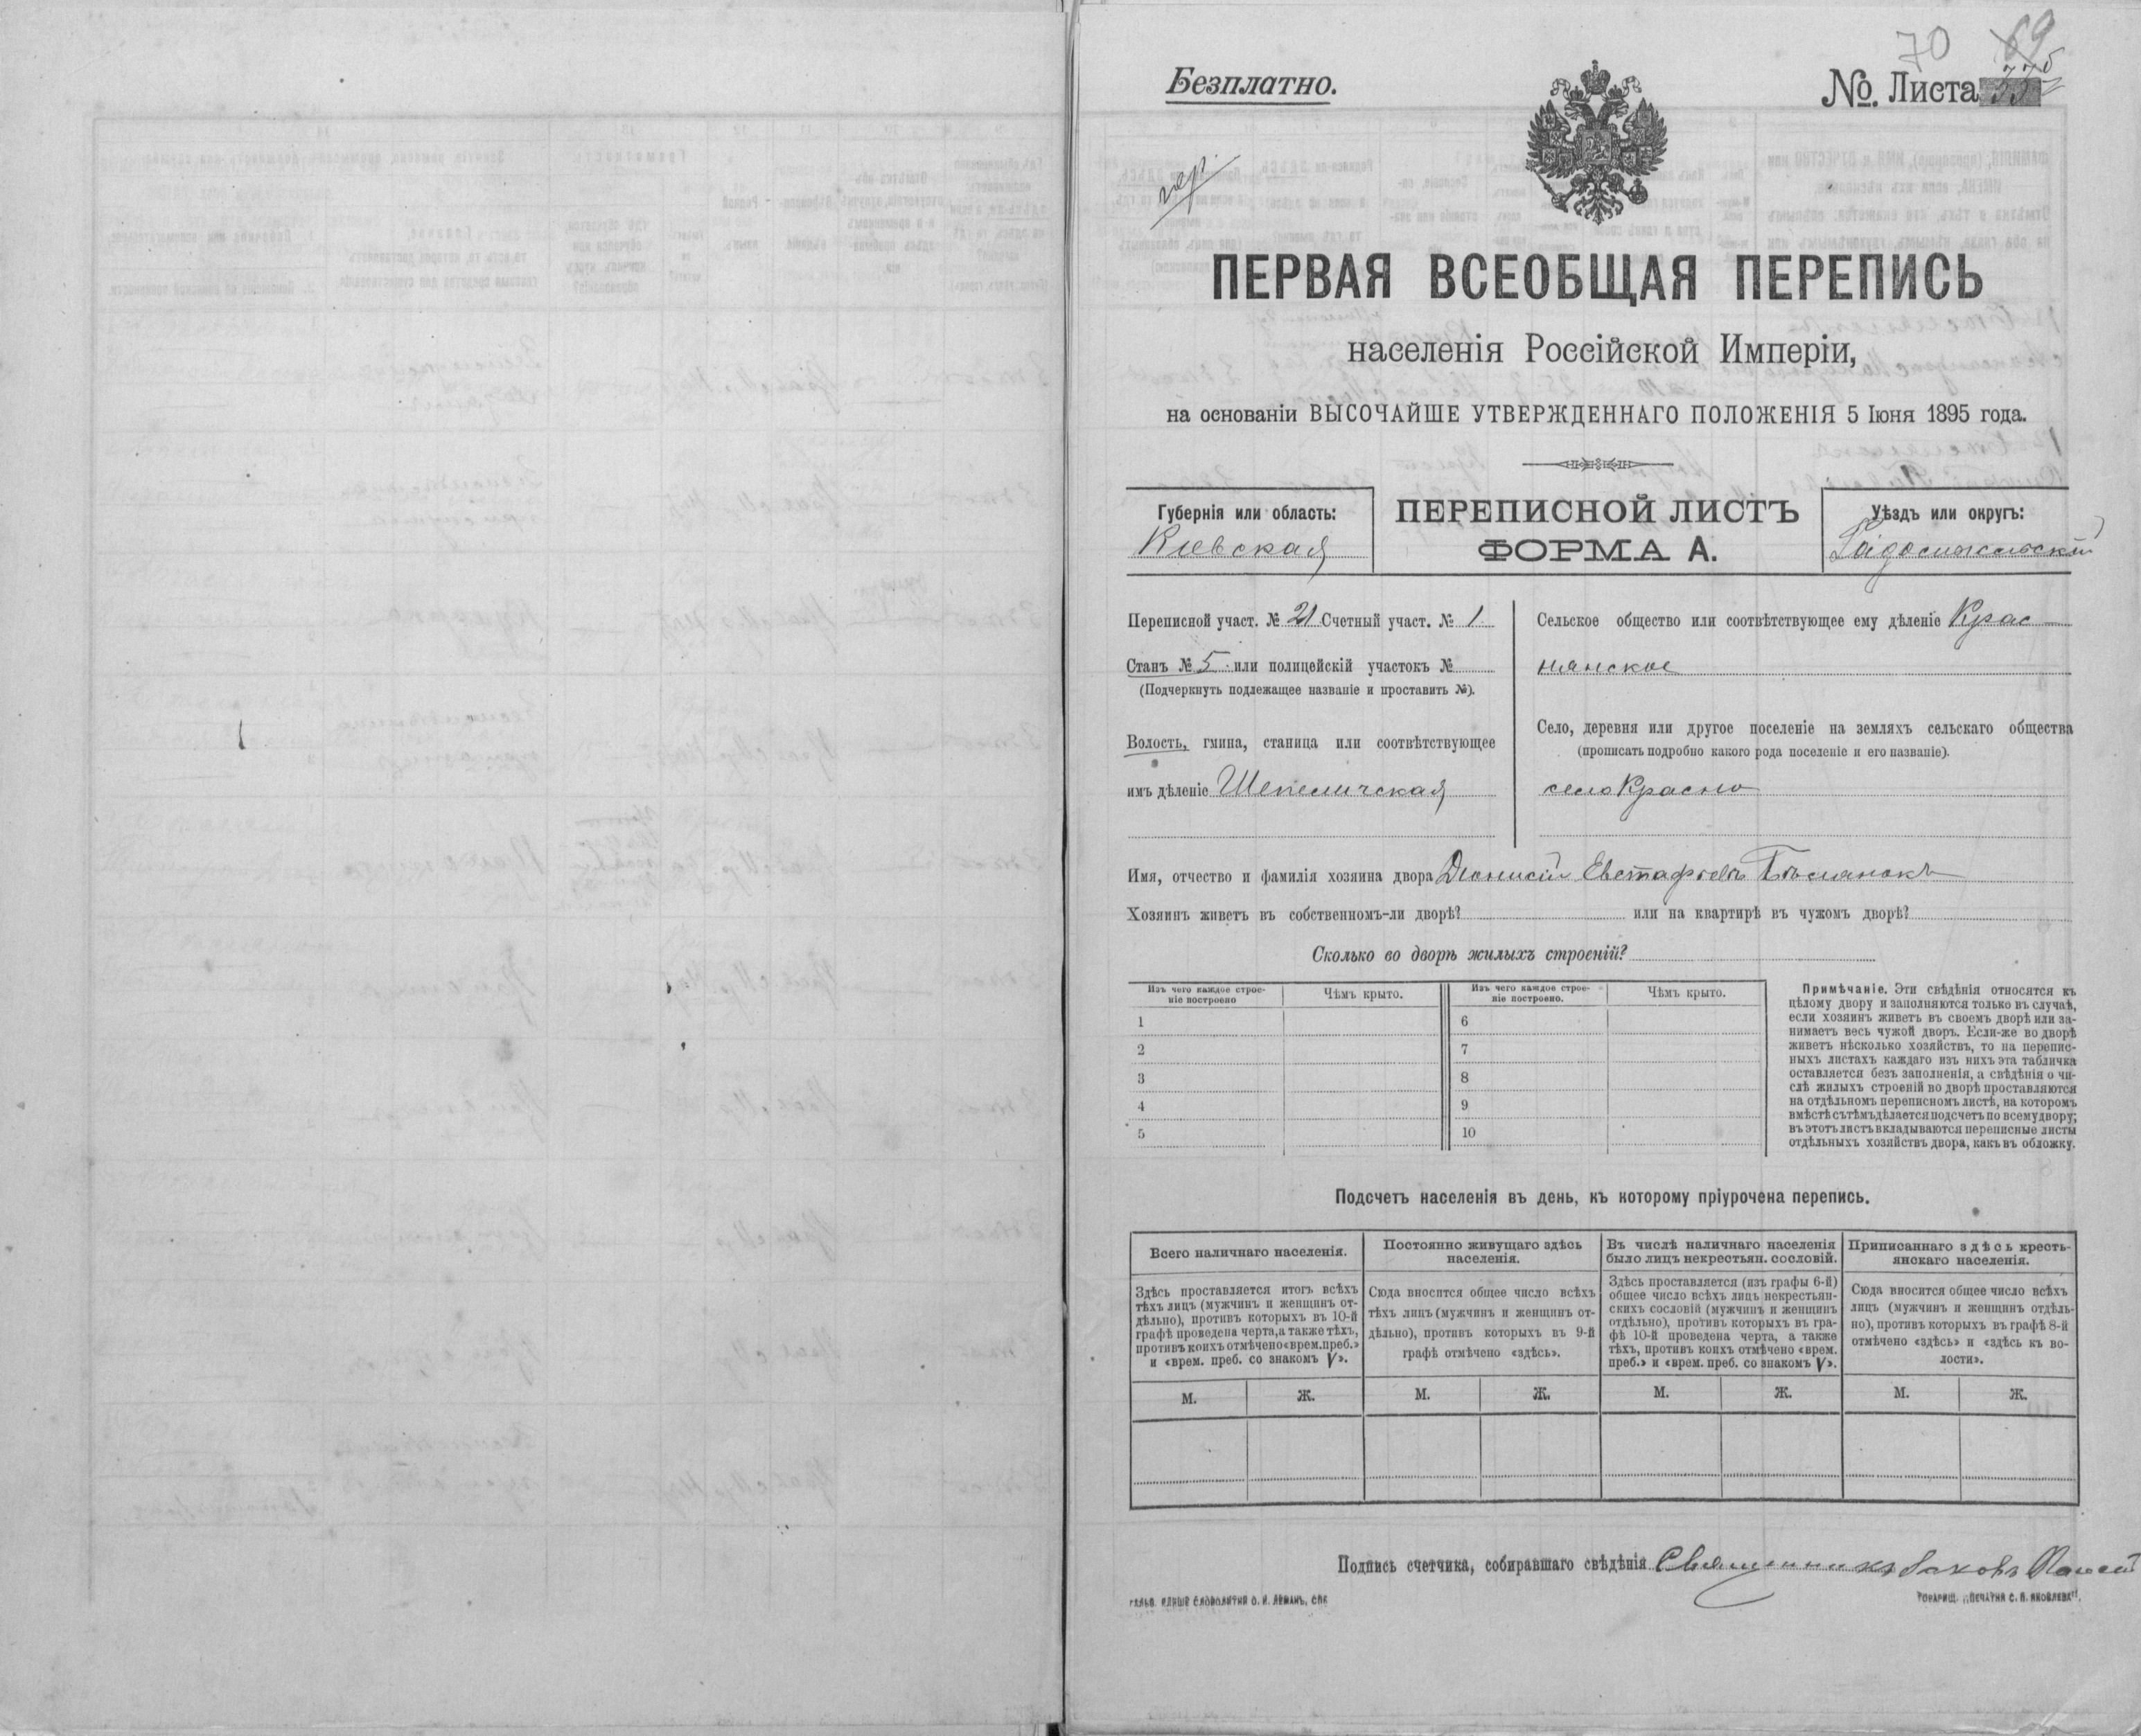 70 69
Безплатно.
№. Листа 335
ПЕРВАЯ ВСЕОБЩАЯ ПЕРЕПИСЬ
населенія Россійской Имперіи,
на основаніи ВЫСОЧАЙШЕ УТВЕРЖДЕННАГО ПОЛОЖЕНІЯ 5 Іюня 1895 года.
Губернія или область:
Кіевская
ПЕРЕПИСНОЙ ЛИСТЪ
ФОРМА А.
Уѣздъ или округъ:
Переписной участ. № 21 Счетный участ. № 1
Станъ № 5 или полицейскій участокъ №
(Подчеркнуть подлежащее названіе и проставить №).
Волость, гмина, станица или соотвѣтствующее
имъ дѣленіе Шепеличская
Сельское общество или соотвѣтствующее ему дѣленіе Крас
нянское
Село, деревня или другое поселеніе на земляхъ сельскаго общества
(прописать подробно какого рода поселеніе и его названіе).
село Красно
Имя, отчество и фамилія хозяина двора Діонисій Евстафіевъ
Хозяинъ живетъ въ собственномъ-ли дворѣ? или на квартирѣ въ чужомъ дворѣ?
Сколько во дворѣ жилыхъ строеній?
Изъ чего каждое строе-
ніе построено
Чѣмъ крыто.
Изъ чего каждое строе-
ніе построено.
Чѣмъ крыто.
1 6
2 7
3 8
4 9
5 10
Примѣчаніе. Эти свѣдѣнія относятся къ
цѣлому двору и заполняются только въ случаѣ,
если хозяинъ живетъ въ своемъ дворѣ или за-
нимаетъ весь чужой дворъ. Если-же во дворѣ
живетъ нѣсколько хозяйствъ, то на перепис-
ныхъ листахъ каждаго изъ нихъ эта табличка
оставляется безъ заполненія, а свѣдѣнія о чи-
слѣ жилыхъ строеній во дворѣ проставляются
на отдѣльномъ переписномъ листѣ, на которомъ
вмѣстѣ съ тѣмъ дѣлается подсчетъ по всему двору;
въ этотъ листъ вкладываются переписные листы
отдѣльныхъ хозяйствъ двора, какъ въ обложку.
Подсчетъ населенія въ день, къ которому пріурочена перепись.
Всего наличнаго населенія.
Здѣсь проставляется итогъ всѣхъ
тѣхъ лицъ (мужчинъ и женщинъ от-
дѣльно), противъ которыхъ въ 10-й
графѣ проведена черта, а также тѣхъ,
противъ коихъ отмѣчено «врем. преб.»
и «врем. преб. со знакомъ V».
М. Ж.
Постоянно живущаго здѣсь
населенія.
Сюда вносится общее число всѣхъ
тѣхъ лицъ (мужчинъ и женщинъ от-
дѣльно), противъ которыхъ въ 9-й
графѣ отмѣчено «здѣсь».
М. Ж.
Въ числѣ наличнаго населенія
было лицъ некрестьян. сословій.
Здѣсь проставляется (изъ графы 6-й)
общее число всѣхъ лицъ некрестьян-
скихъ сословій (мужчинъ и женщинъ
отдѣльно), противъ которыхъ въ гра-
фѣ 10-й проведена черта, а также
тѣхъ, противъ коихъ отмѣчено «врем.
преб.» и «врем. преб. со знакомъ V».
М. Ж.
Приписаннаго здѣсь кресть-
янскаго населенія.
Сюда вносится общее число всѣхъ
лицъ (мужчинъ и женщинъ отдѣль-
но), противъ которыхъ въ графѣ 8-й
отмѣчено «здѣсь» и «здѣсь къ во-
лости».
М. Ж.
Подпись счетчика, собиравшаго свѣдѣнія Священникъ Іаковъ
ГАЛЬВ. КЛИШЕ СЛОВОЛИТНИ О. И. ЛЕМАНЪ, СПБ
ТОВАРИЩ. „ПЕЧАТНЯ С. П. ЯКОВЛЕВА".